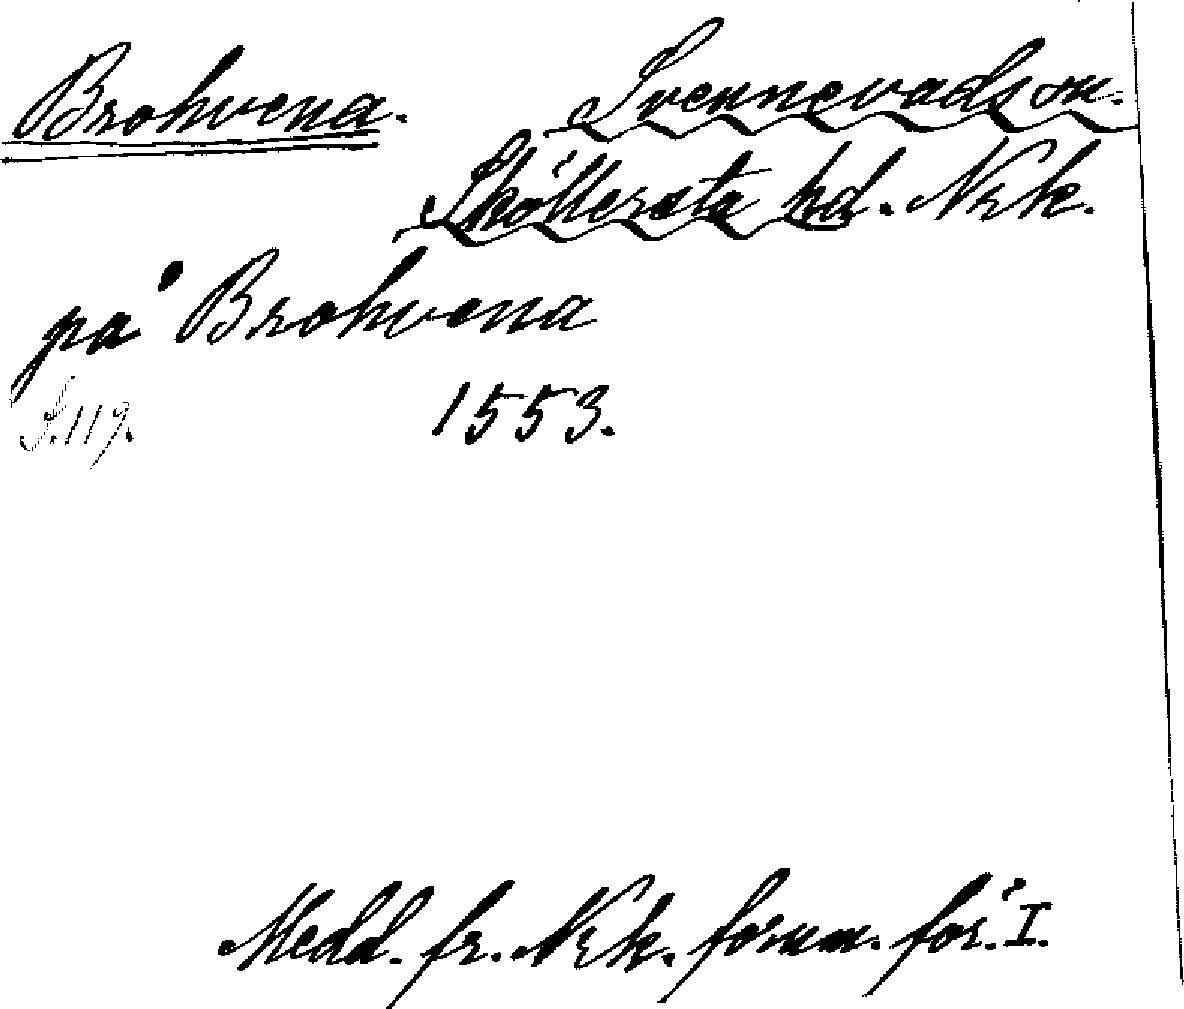 Brohvena. Svennevads sn.
Sköllersta hd. Nrk.
på Brohvena
S. 119. 1553.
Medd. fr. Nrk. fornm. för. I.